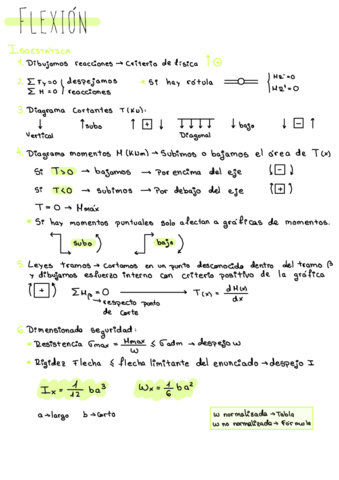 FLEXIÓN
ISOESTÁTICA
1. Dibujamos reacciones → Criterio de física ↑ ⊕
2. Σ Fy = 0 } despejamos → Si hay rótula { Mz = 0
Σ M = 0 } reacciones { Mz' = 0
3. Diagrama Cortantes T (KN):
↓ ↑ subo ↑ [+] ↓ ↓↓↓↓↓ ↓ bajo ↓ [-] ↑
Vertical Diagonal
4. Diagrama momentos M (KNm) → Subimos o bajamos el área de T(x)
Si T>0 → bajamos → Por encima del eje [-]
Si T<0 → subimos → Por debajo del eje [+]
T = 0 → Mmáx
• Si hay momentos puntuales solo afectan a gráficas de momentos.
subo bajo
5. Leyes tramos → Cortamos en un punto desconocido dentro del tramo β
y dibujamos esfuerzo interno con criterio positivo de la gráfica
[+] ΣMβ = 0 → T(x) = dM(x)/dx
→ respecto punto
de corte
6. Dimensionado seguridad:
• Resistencia σmax = Mmax/ω ≤ σadm → despejo ω
• Rigidez Flecha ≤ flecha limitante del enunciado → despejo I
Ix = 1/12 b a³ Wx = 1/6 b a²
a → largo b → corto
ω normalizada → Tabla
ω no normalizada → Fórmula